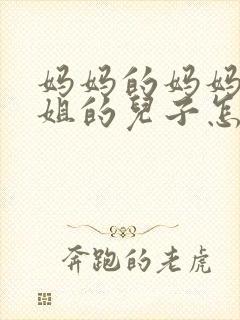 妈妈的妈妈
姐的兒子怎
奔跑的老虎